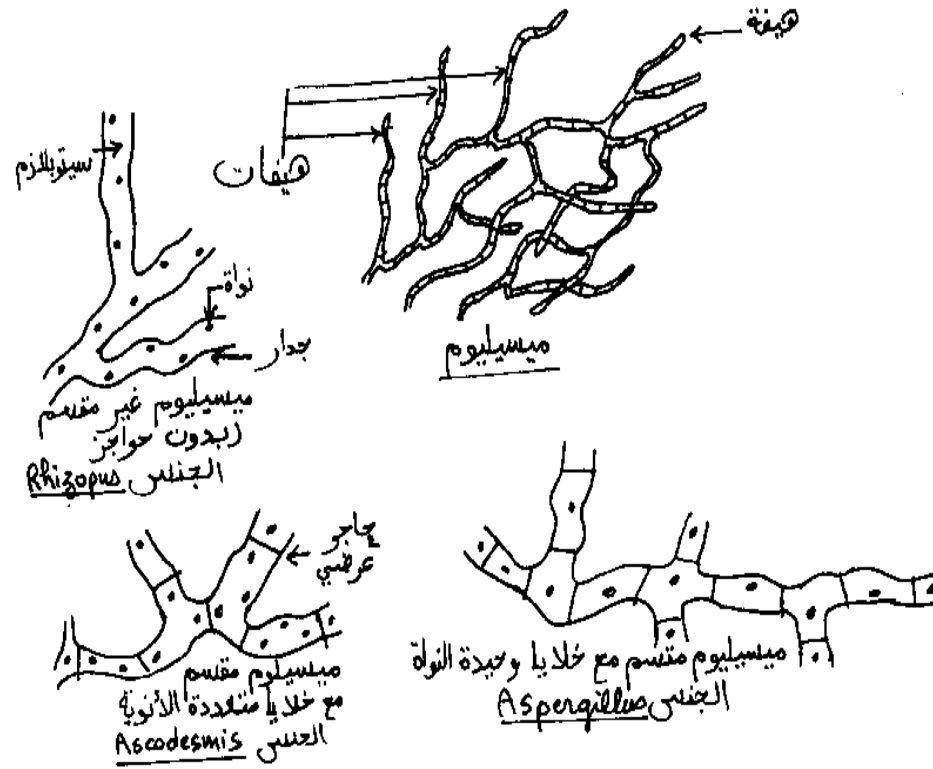 هيفة
هيفات
ميسيليوم
سيتوبلازم
نواة
جدار
ميسيليوم غير مقسم
بدون حواجز
الجنس Rhizopus
حاجز
عرضي
ميسيليوم مقسم
مع خلايا متعددة الأنوية
الجنس Ascodesmis
ميسيليوم مقسم مع خلايا وحيدة النواة
الجنس Aspergillus